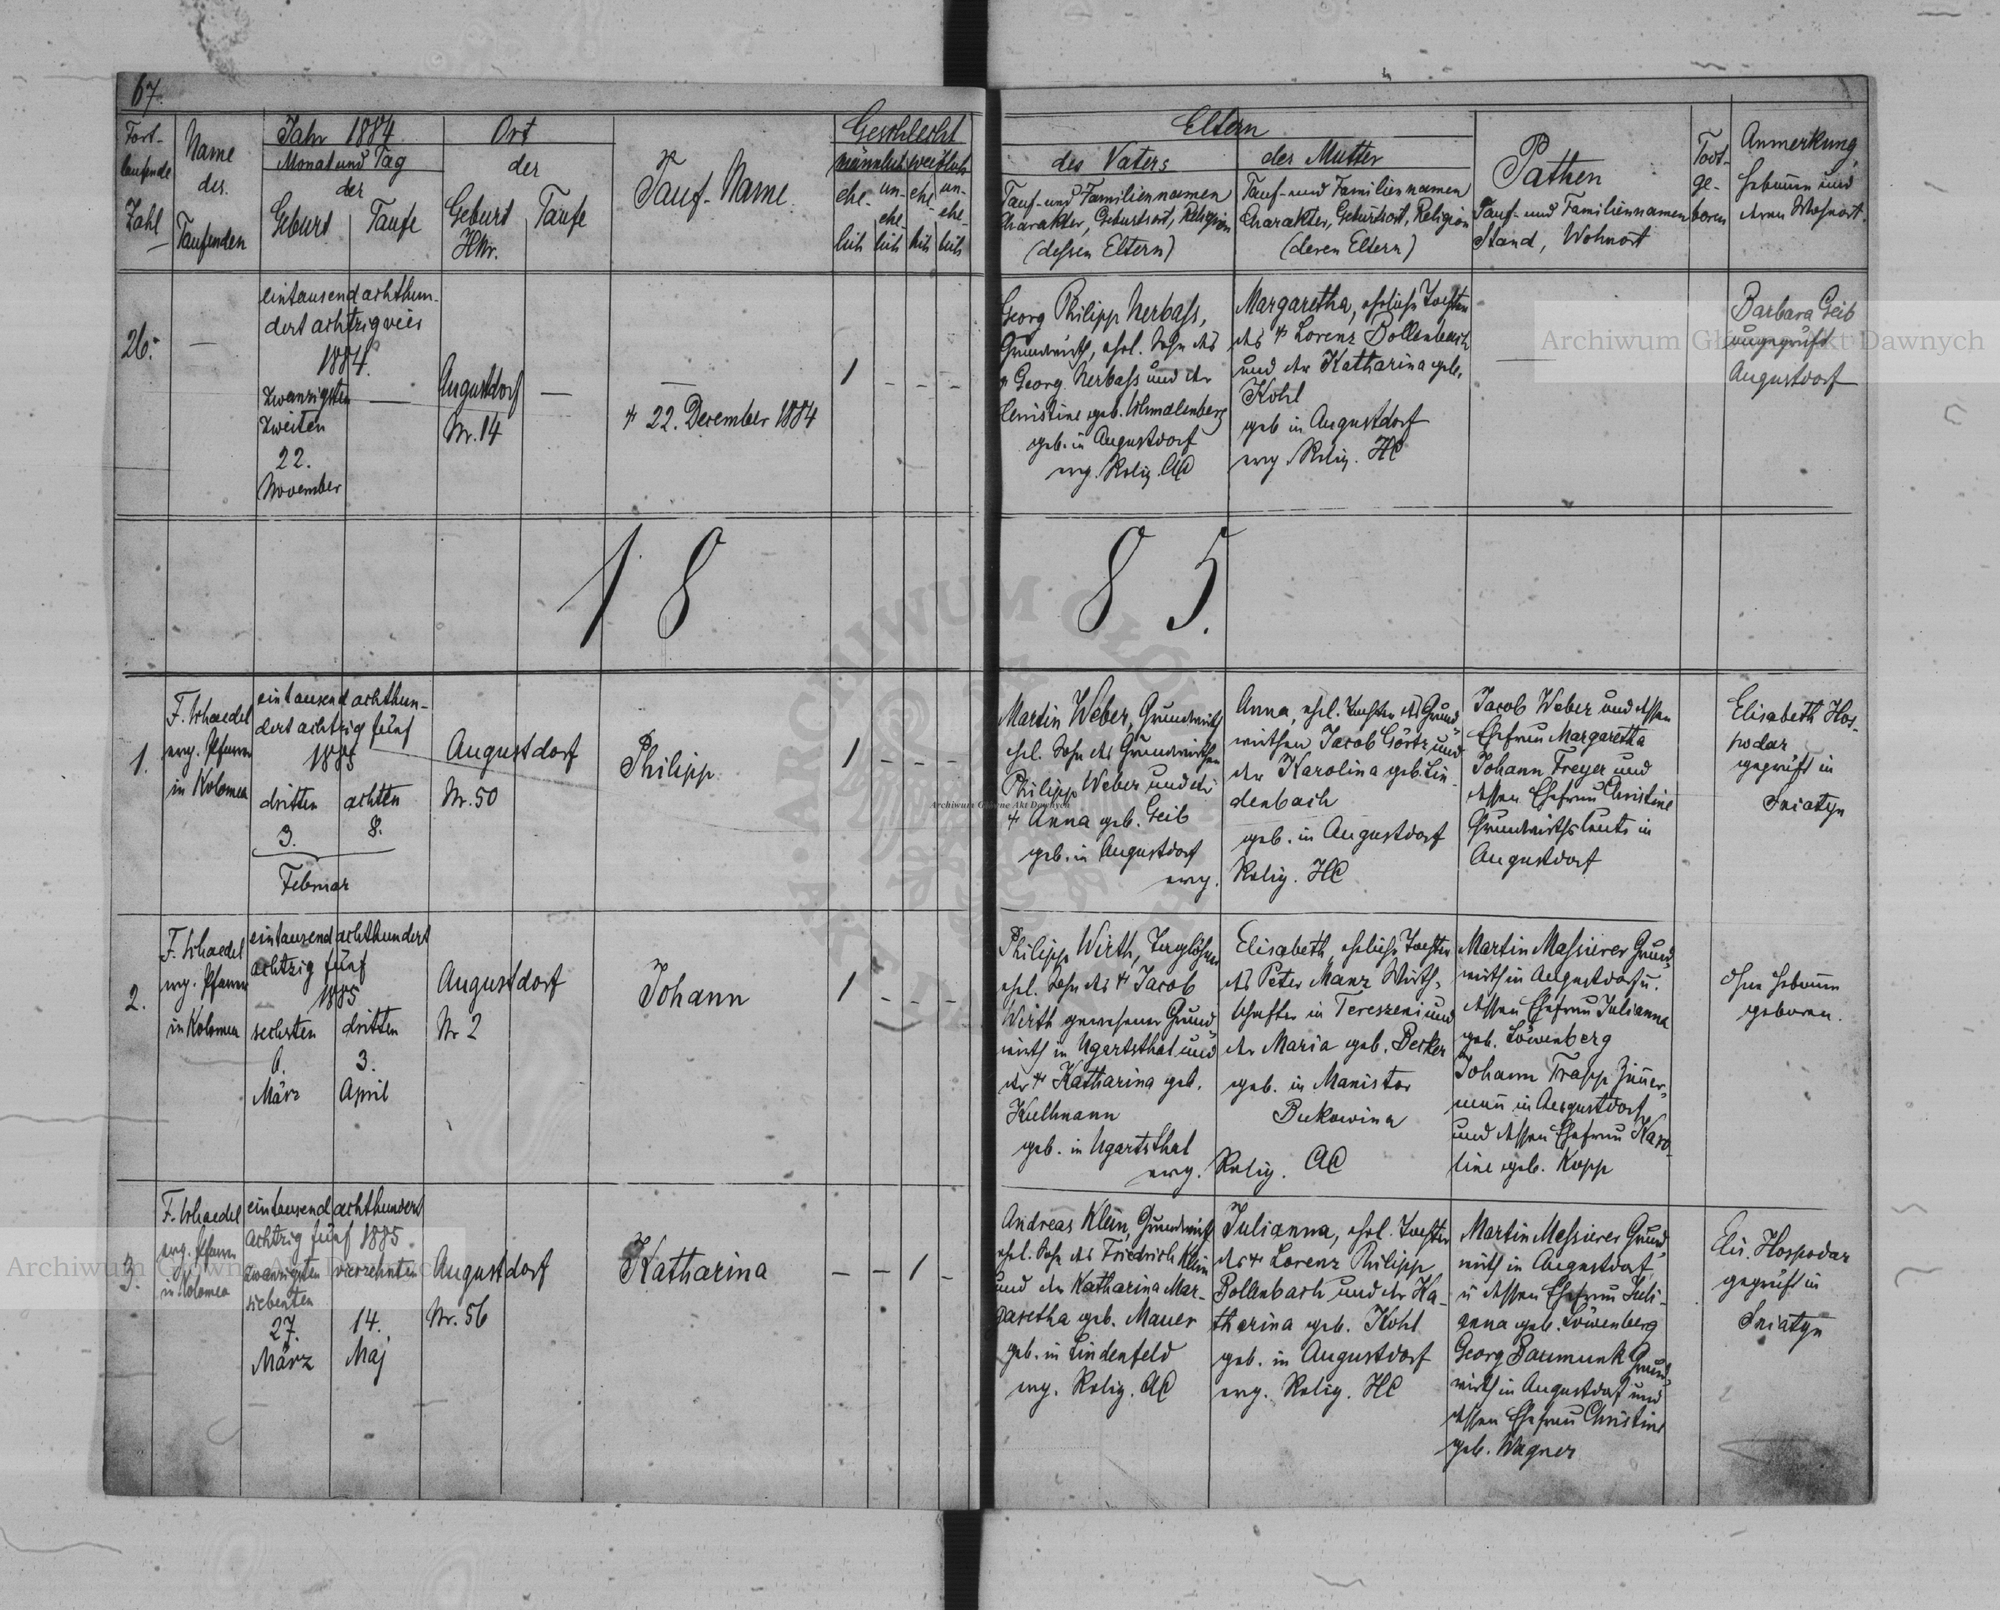 67.
Fort-
laufende
Zahl
Name
des
Taufenden
Jahr 1884
Monat und Tag
der
Geburt
Taufe
Ort
der
Geburt
HNr.
Taufe
Tauf-Name
Geschlecht
männlich weiblich
ehe-
lich
un-
ehe-
lich
ehe-
lich
un-
ehe-
lich
Eltern
des Vaters
Tauf- und Familiennamen
Charakter, Geburtsort, Religion
(dessen Eltern)
der Mutter
Tauf- und Familiennamen
Charakter, Geburtsort, Religion
(deren Eltern)
Pathen
Tauf- und Familiennamen
Stand, Wohnort
Todt-
ge-
boren
Anmerkung,
Hebamme und
deren Wohnort.
26.
—
eintausend achthun-
dert achtzig vier
1884.
zwanzigsten
zweiten
22.
November
—
Augustdorf
Nr. 14
—
—
† 22. December 1884
1 - - -
Georg Philipp Nerbass,
Grundwirth, ehel. Sohn des
† Georg Nerbass und der
Christine geb. Schmalenberg
geb. in Augustdorf
evg. Relig. AC
Margaretha, eheliche Tochter
des † Lorenz Bollenbach
und der Katharina geb.
Kohl
geb in Augustdorf
evg. Relig. HC
—
Barbara Geib
ungeprüft
Augustdorf
1 8 8 5.
1.
F. Schaedel
evg. Pfarrer
in Kolomea
eintausend achthun-
dert achtzig fünf
1885
dritten
3.
achten
8.
Februar
Augustdorf
Nr. 50
Philipp
1 - - -
Martin Weber, Grundwirth
ehel. Sohn des Grundwirthen
Philipp Weber und der
† Anna geb. Geib
geb. in Augustdorf
evg.
Anna, ehel. Tochter des Grund-
wirthen Jacob Görtz und
der Karolina geb. Lin-
denbach
geb. in Augustdorf
Relig. HC
Jacob Weber und dessen
Ehefrau Margaretha
Johann Freyer und
dessen Ehefrau Christine
Grundwirthsleute in
Augustdorf
Elisabeth Hos-
podar
geprüft in
Sniatyn
2.
F. Schaedel
evg. Pfarrer
in Kolomea
eintausend achthundert
achtzig fünf
1885
sechsten
6.
März
dritten
3.
April
Augustdorf
Nr 2
Johann
1 - - -
Philipp Wirth, Taglöhner
ehel. Sohn des † Jacob
Wirth gewesener Grund-
wirth in Ugartsthal und
der † Katharina geb.
Kullmann
geb. in Ugartsthal
evg.
Elisabeth, eheliche Tochter
des Peter Manz Wirth-
schafter in Tereszeni und
der Maria geb. Decker
geb. in Manistor
Bukowina
Relig. AC
Martin Messierer Grund-
wirth in Augustdorf u.
dessen Ehefrau Julianna
geb. Löwenberg
Johann Trapp Zimmer-
mann in Augustdorf
und dessen Ehefrau Karo-
line geb. Kopp
ohne Hebamme
geboren.
3.
F. Schaedel
evg. Pfarrer
in Kolomea
eintausend achthundert
achtzig fünf 1885
zwanzigsten
siebenten
27.
März
vierzehnten
14.
Maj
Augustdorf
Nr. 56
Katharina
— — 1 -
Andreas Klein, Grundwirth
ehel. Sohn des Friedrich Klein
und der Katharina Mar-
garetha geb. Mauer
geb. in Lindenfeld
evg. Relig. AC
Julianna, ehel. Tochter
des † Lorenz Philipp
Bollenbach und der Ka-
tharina geb. Kohl
geb. in Augustdorf
evg. Relig. HC
Martin Messierer Grund-
wirth in Augustdorf
u dessen Ehefrau Juli-
anna geb. Löwenberg
Georg Baumunk Grund-
wirth in Augustdorf und
dessen Ehefrau Christine
geb. Wagner
Elis. Hospodar
geprüft in
Sniatyn
Archiwum Główne Akt Dawnych
Archiwum Główne Akt Dawnych
Archiwum Główne Akt Dawnych